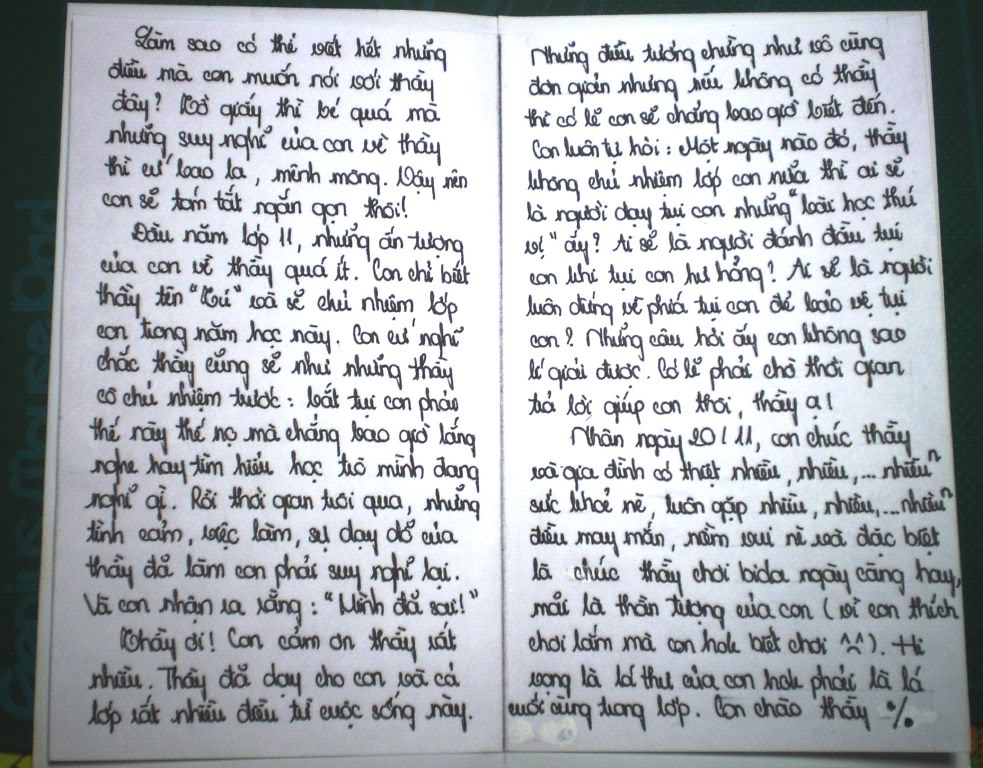 Làm sao có thể viết hết những
điều mà con muốn nói với thầy
đây? Tờ giấy thì bé quá mà
những suy nghĩ của con về thầy
thì cứ bao la, mênh mông. Vậy nên
con sẽ tóm tắt ngắn gọn thôi!
Đầu năm lớp 11, những ấn tượng
của con về thầy quá ít. Con chỉ biết
thầy tên "Tú" và sẽ chủ nhiệm lớp
con trong năm học này. Con cứ nghĩ
chắc thầy cũng sẽ như những thầy
cô chủ nhiệm trước: bắt tụi con phải
thế này thế nọ mà chẳng bao giờ lắng
nghe hay tìm hiểu học trò mình đang
nghĩ gì. Rồi thời gian trôi qua, những
tình cảm, việc làm, sự dạy dỗ của
thầy đã làm con phải suy nghĩ lại.
Và con nhận ra rằng: "Mình đã sai!"
Thầy ơi! Con cảm ơn thầy rất
nhiều. Thầy đã dạy cho con và cả
lớp rất nhiều điều từ cuộc sống này.
Những điều tưởng chừng như vô cùng
đơn giản nhưng nếu không có thầy
thì có lẽ con sẽ chẳng bao giờ biết đến.
Con luôn tự hỏi: Một ngày nào đó, thầy
không chủ nhiệm lớp con nữa thì ai sẽ
là người dạy tụi con những "bài học thú
vị" ấy? Ai sẽ là người đánh đầu tụi
con khi tụi con hư hỏng? Ai sẽ là người
luôn đứng về phía tụi con để bảo vệ tụi
con? Những câu hỏi ấy con không sao
lí giải được. Có lẽ phải chờ thời gian
trả lời giúp con thôi, thầy ạ!
Nhân ngày 20/11, con chúc thầy
và gia đình có thật nhiều, nhiều,... nhiềuⁿ
sức khoẻ nè, luôn gặp nhiều, nhiều,...nhiềuⁿ
điều may mắn, niềm vui nè và đặc biệt
là chúc thầy chơi bida ngày càng hay,
mãi là thần tượng của con (vì con thích
chơi lắm mà con hok biết chơi ^^). Hi
vọng là lá thư của con hok phải là lá
cuối cùng trong lớp. Con chào thầy %.